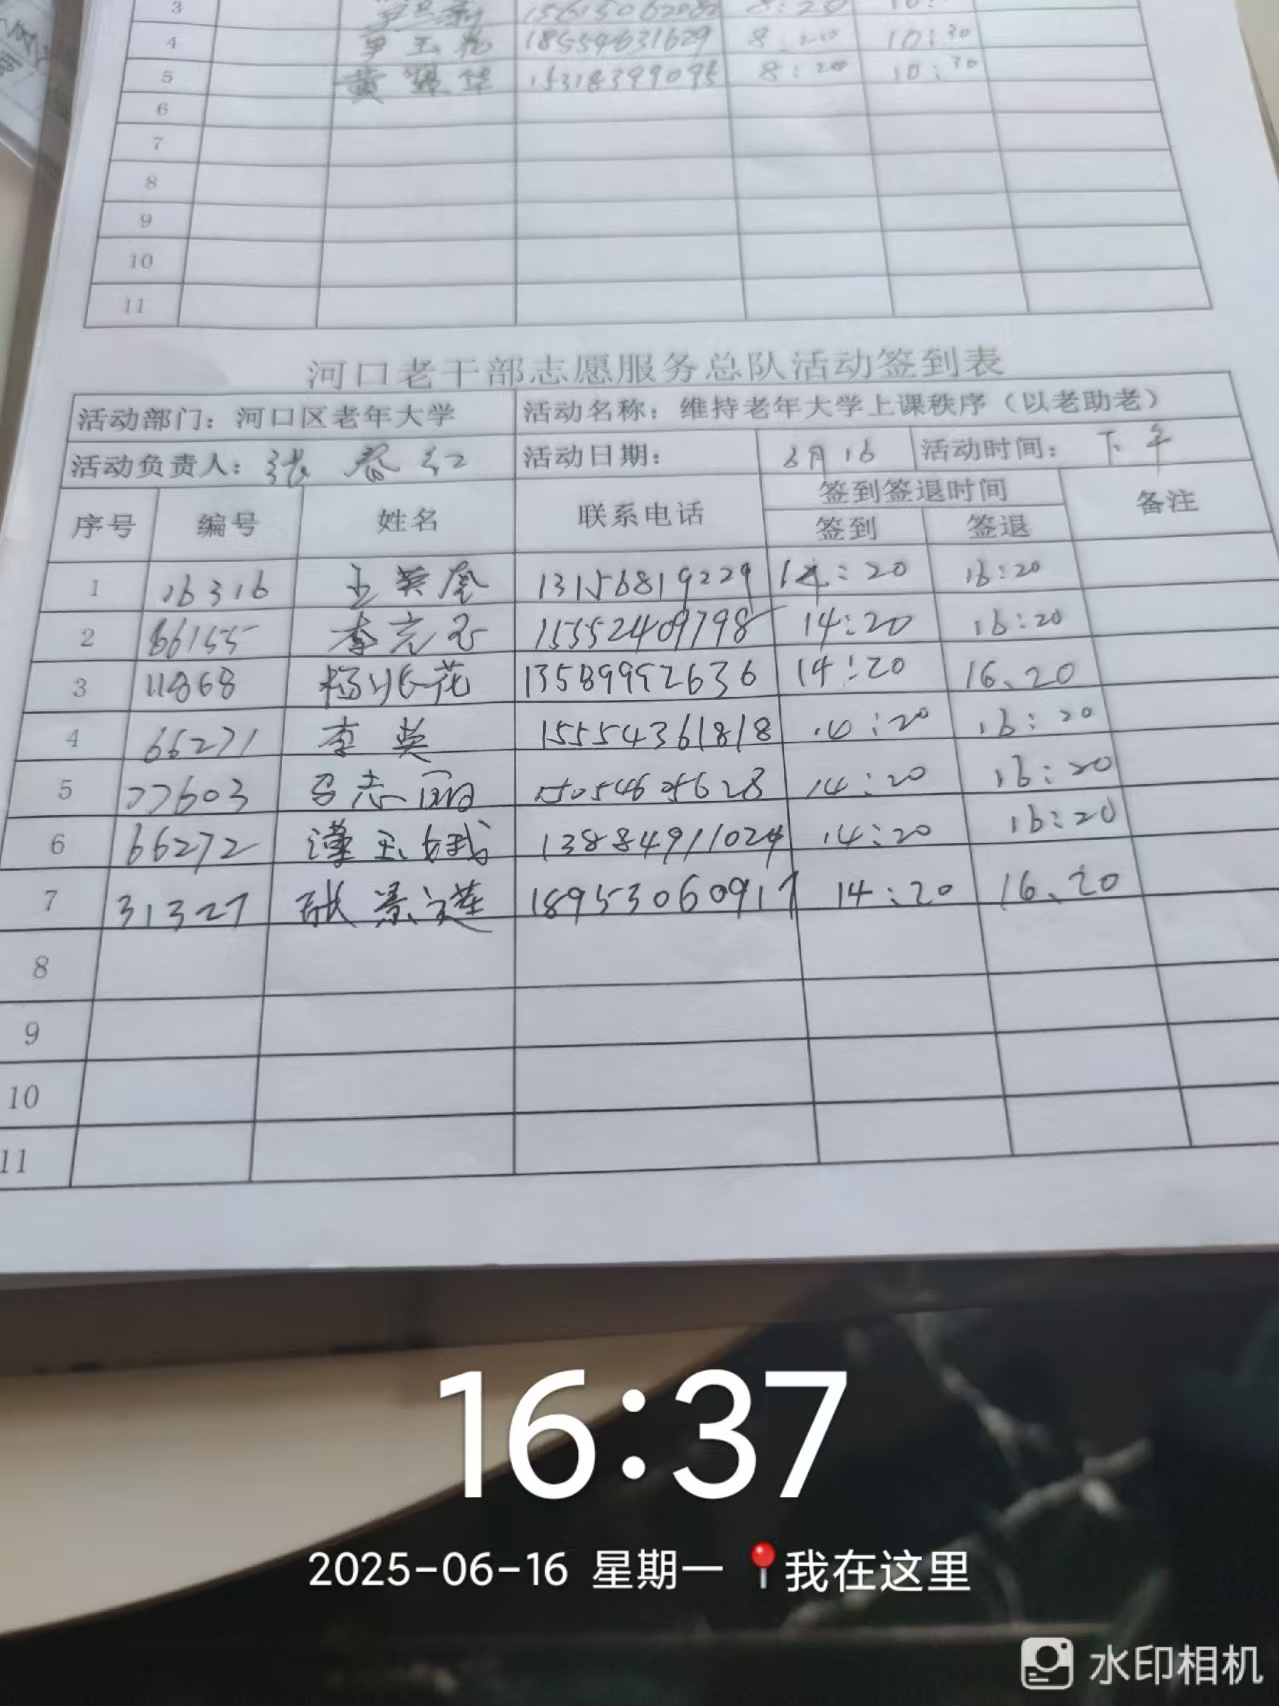 3 15615062082 8:20
4 尹玉花 18554631629 8:20 10:30
5 黄翠华 15318399095 8:20 10:30
6
7
8
9
10
11
河口老干部志愿服务总队活动签到表
活动部门：河口区老年大学 活动名称：维持老年大学上课秩序（以老助老）
活动负责人：张春红 活动日期： 6月16 活动时间：下午
序号 编号 姓名 联系电话 签到签退时间 备注
签到 签退
1 16316 王英凤 13156819229 14:20 16:20
2 66155 李克玉 15552409798 14:20 16:20
3 11868 杨兆花 13589992636 14:20 16、20
4 66271 李英 15554361818 14:20 16:20
5 77603 马志丽 15054625628 14:20 16:20
6 66272 谭玉娥 13884911024 14:20 16:20
7 31327 张景莲 18953060917 14:20 16、20
8
9
10
11
16:37
2025-06-16 星期一 📍我在这里
水印相机